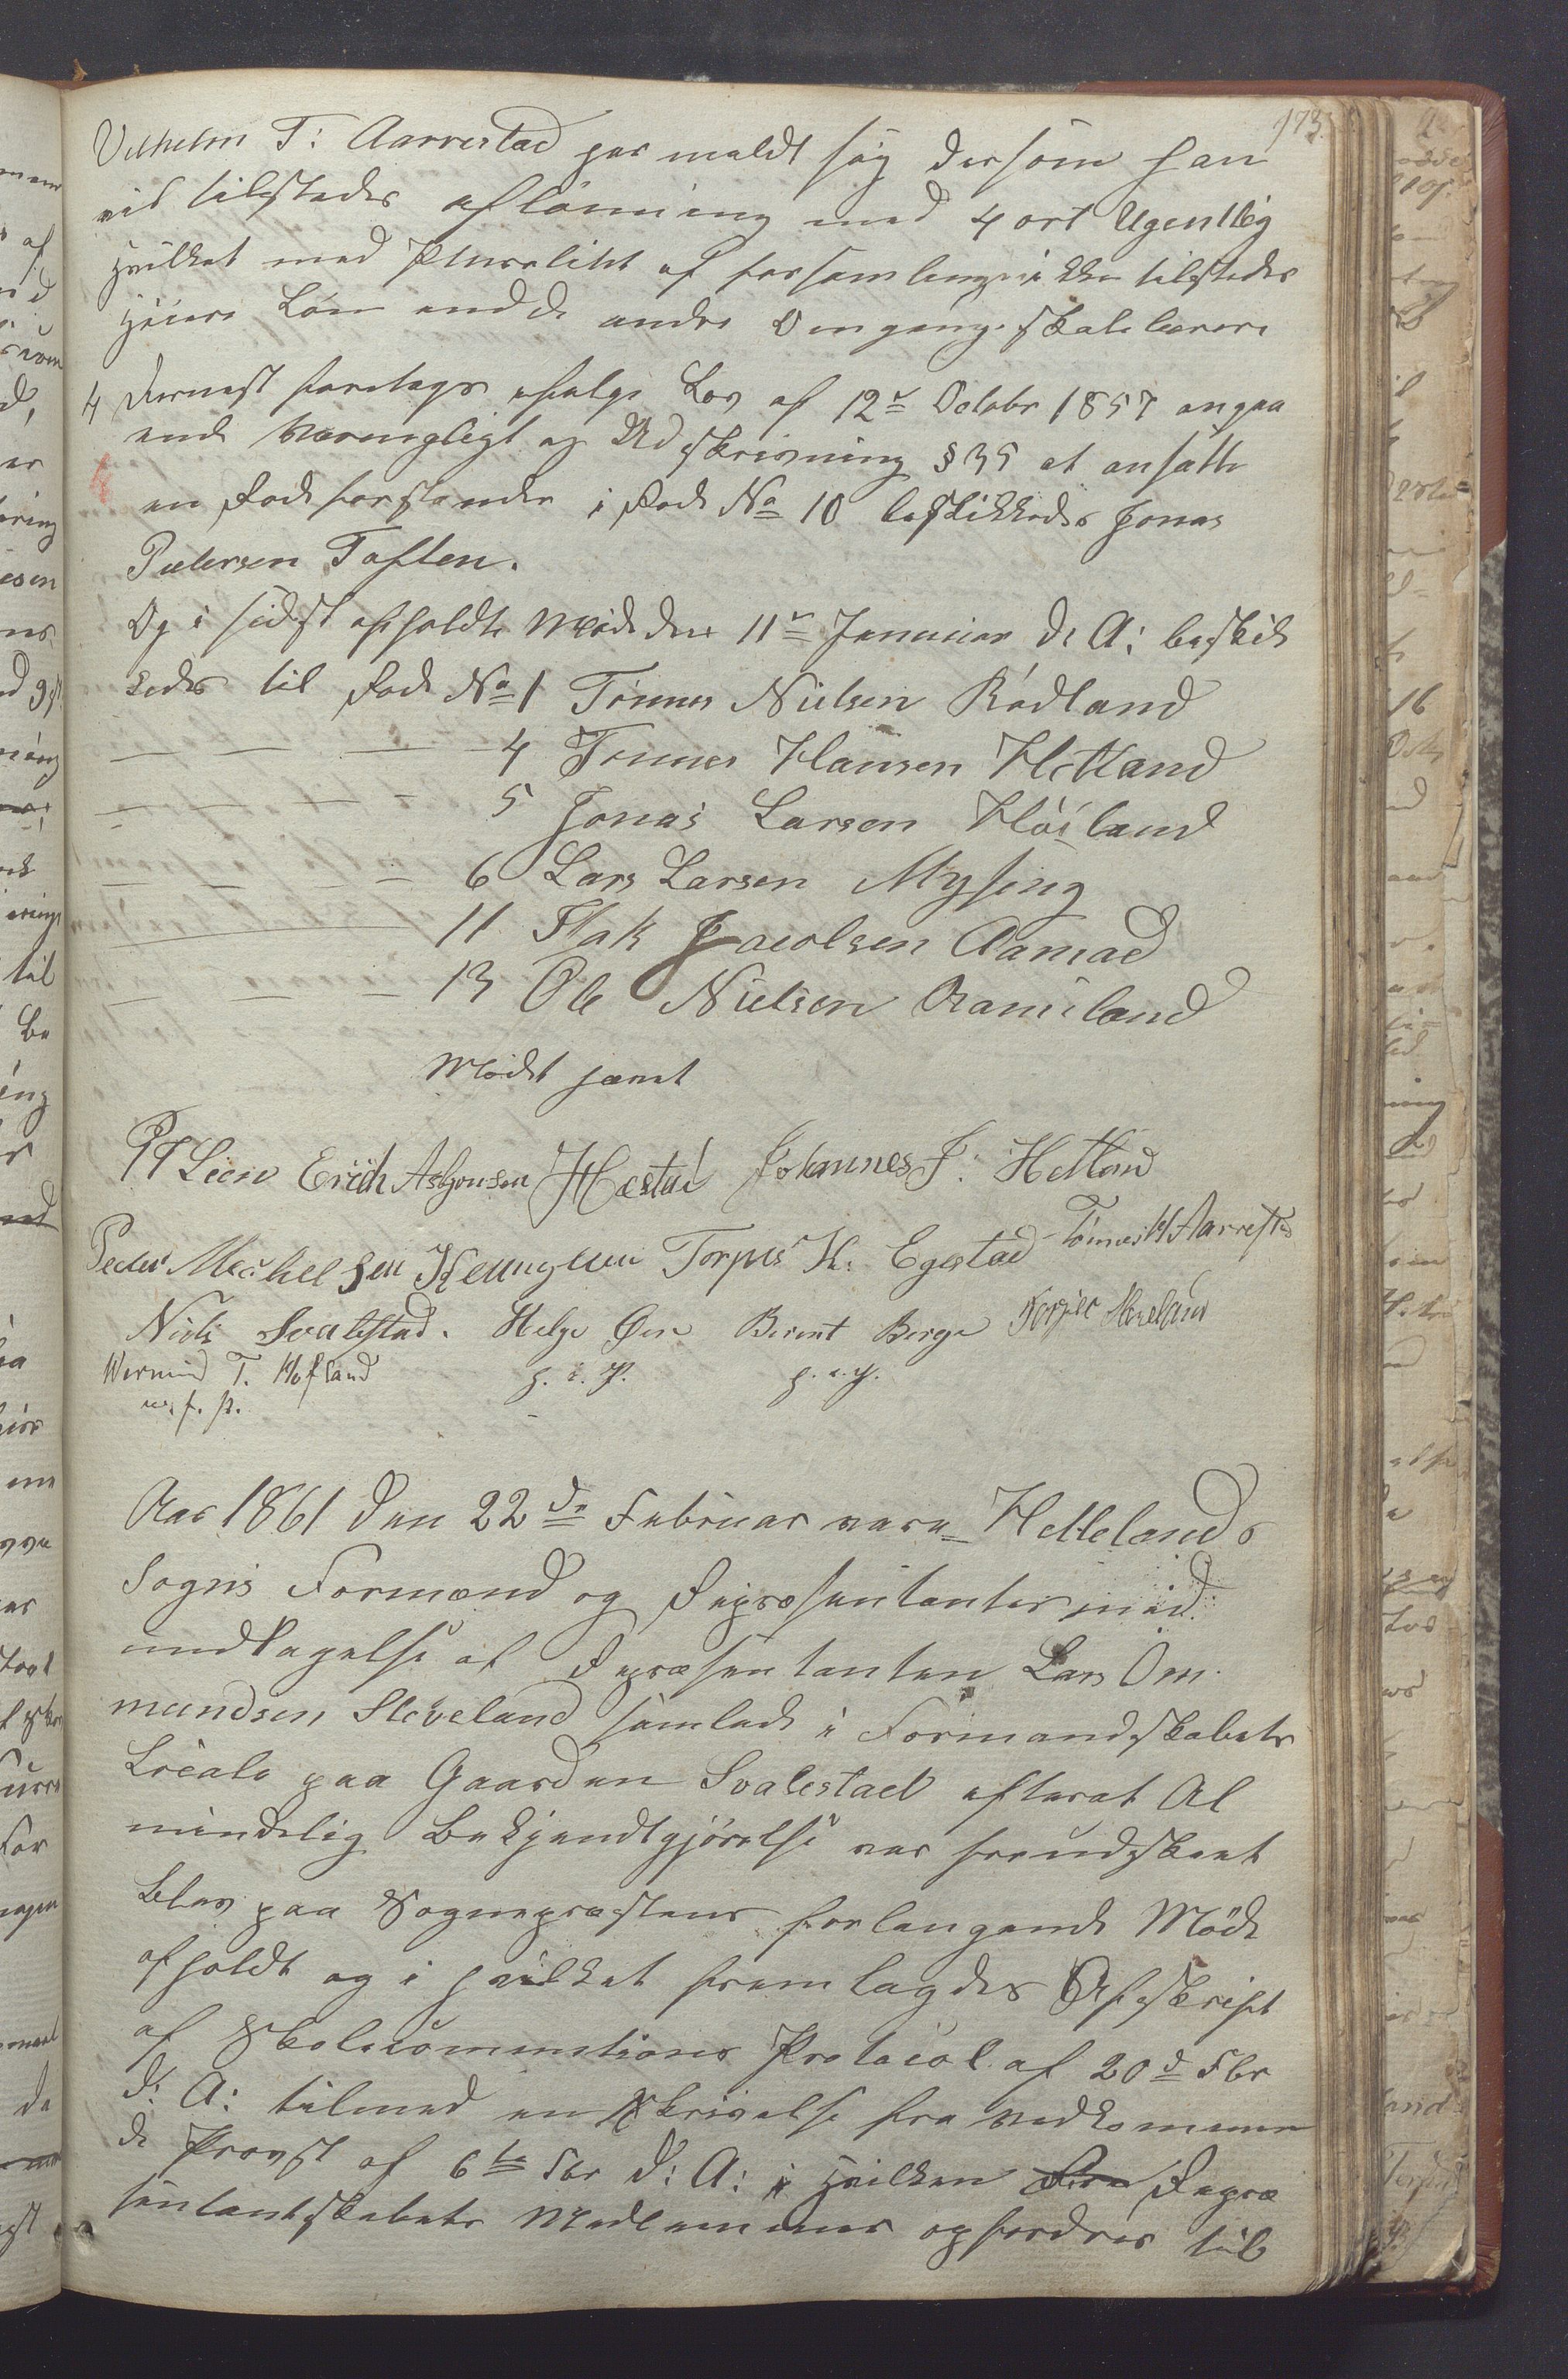 173.
Vilhelm T: Aarrestad har meldt sig dersom han
vil tilstedes aflønning med 4 ort Ugentlig
hvilket med Pluralitet af forsamlingen ikke tilstedes
høiere Løn end de andre Omgangsskolelærere
4 Dernæst foretoges ifølge Lov af 12te Octobr 1857 angaa
ende Værnepligt og Udskrivning § 35 at ansætte
en Rodeforstander i Rode No 10 beskikkedes Jonas
Pedersen Toften.
Og i sidst afholdte Møde den 11te Januar d: A: beskik
kedes til Rode No 1 Tønnes Nielsen Rødland
— — — — 4 Tønnes Hansen Hetland
— — — — 5 Jonas Larsen Høiland
— — — — 6 Lars Larsen Mysing
11 Isak Jacobsen Aamod
— — — — 13 Ole Nielsen Ramsland
Mødet hævet
PT Leen Erich Asbjønsen Hæstad Johannes J. Hetland
Peder Michelsen Torger K: Egestad Tønnes W Aarrestad
Niels Svalestad. Helge Øen Berent Berge Torger Hæeland
T. Hofland h. i. P. h. i. P.
m. f. p.
Aar 1861 den 22de Februar vare Hetlelands
Sogns Formænd og Repræsentanter med
undtagelse af Repræsentanten Lars Om
mundsen Sleveland samlede i Formandskabets
Locale paa Gaarden Svalestad efterat Al
mindelig Bekjendtgjørelse var forudskeet
blev paa Sognepræstens forlangende Møde
afholdt og i hvilket fremlagdes Afskrift
af Skolecommissions Protocol af 20de Fbr
d: A: tilmed en Skrivelse fra vedkommen
de Provst af 6te Fbr d: A: i hvilken Repræ
sentantskabets Medlemmer opfordres til